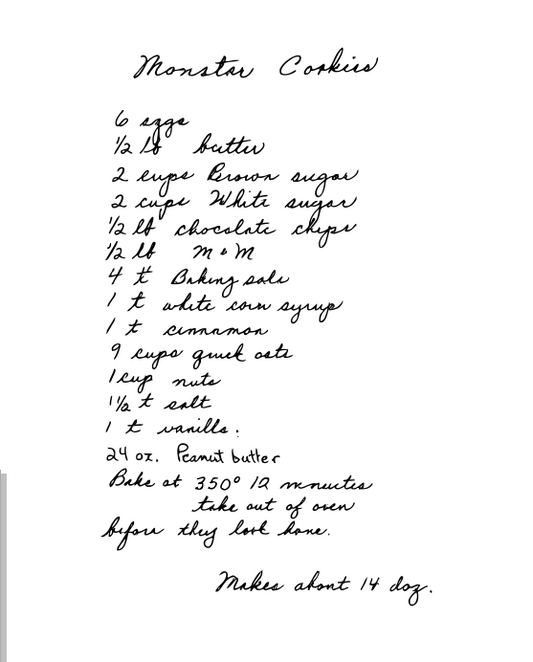 Monstar Cookies
6 eggs
1/2 lb butter
2 cups Brown sugar
2 cups White sugar
1/2 lb chocolate chips
1/2 lb M & M
4 t Baking soda
1 t white corn syrup
1 t cinnamon
9 cups quick oats
1 cup nuts
1 1/2 t salt
1 t vanilla.
24 oz. Peanut butter
Bake at 350° 12 minutes
take out of oven
before they look done.
Makes about 14 doz.